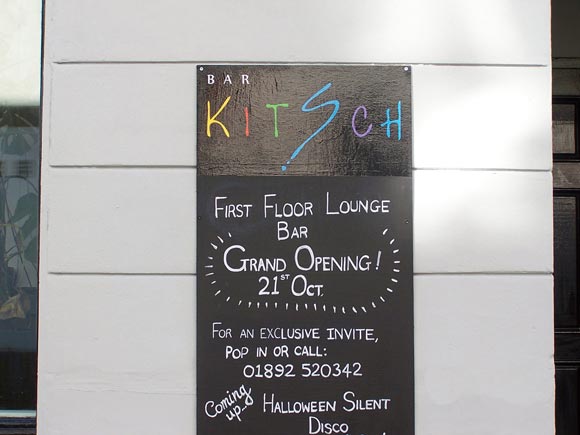 BAR
KITSCH
FIRST FLOOR LOUNGE
BAR
GRAND OPENING!
21ST OCT.
FOR AN EXCLUSIVE INVITE,
POP IN OR CALL:
01892 520342
Coming
up...
HALLOWEEN SILENT
DISCO